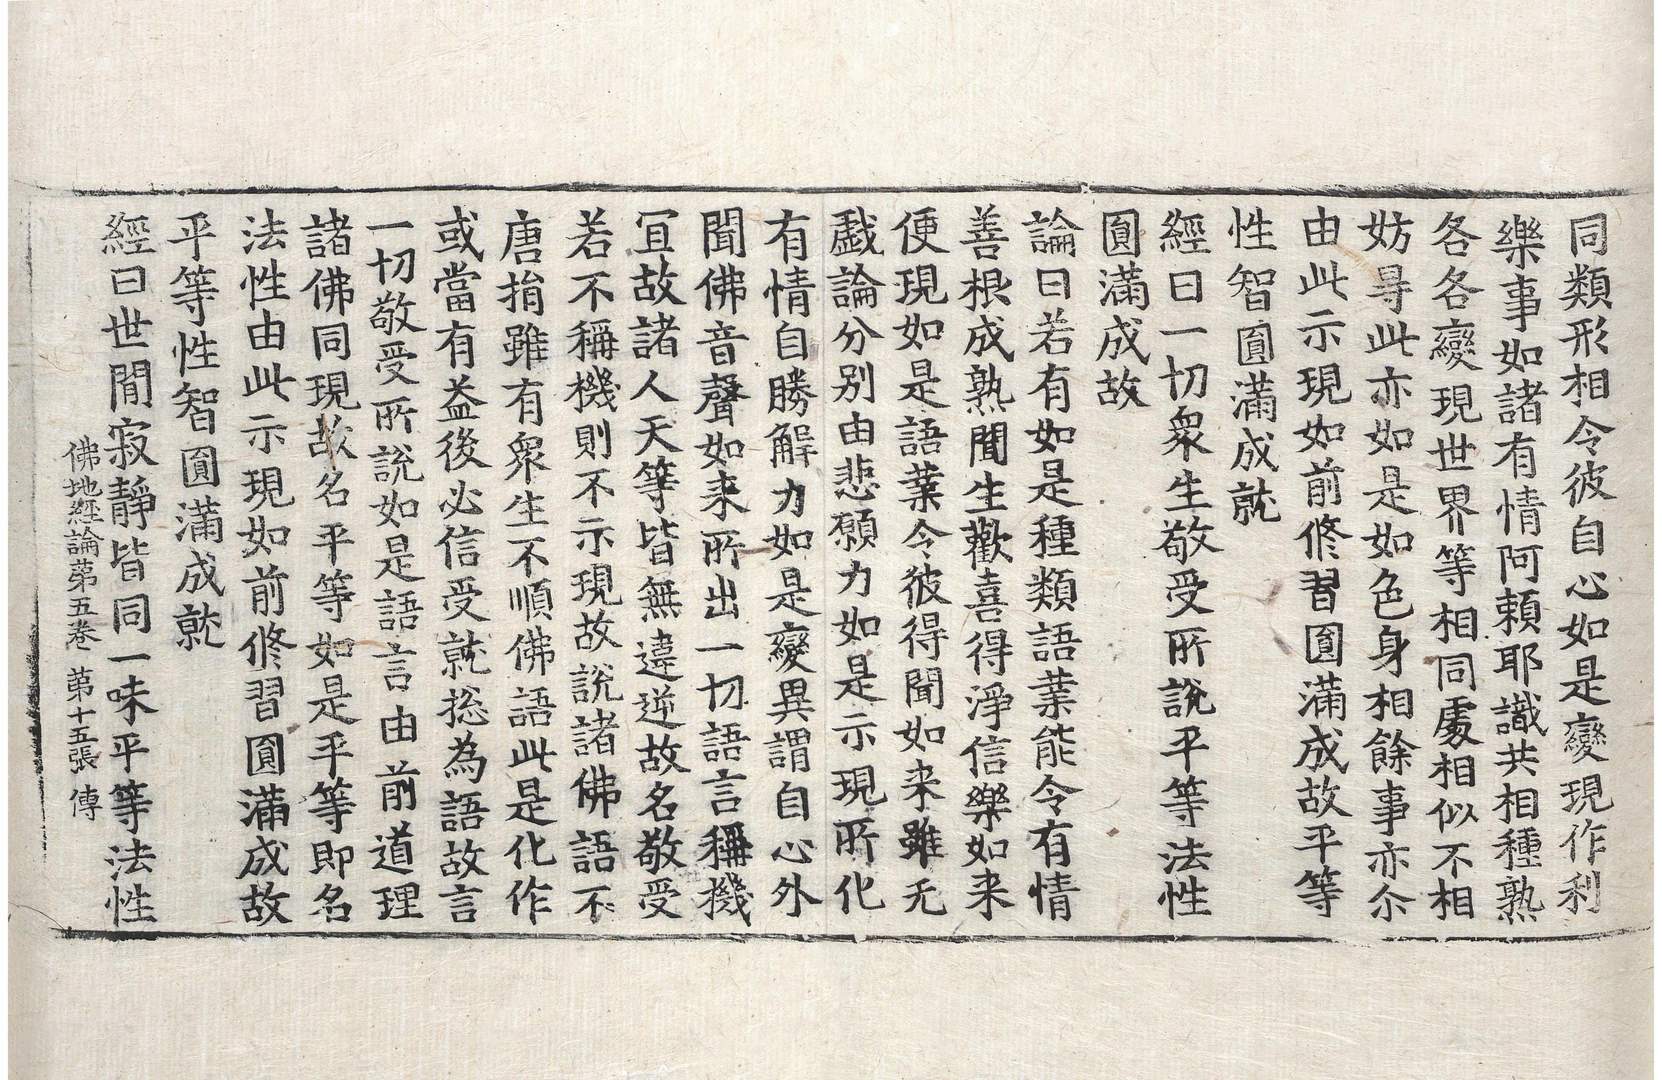 同類形相令彼自心如是變現作利
樂事如諸有情阿賴耶識共相種熟
各各變現世界等相同處相似不相
妨㝵此亦如是如色身相餘事亦尒
由此示現如前修習圓滿成故平等
性智圓滿成就
經曰一切衆生敬受所說平等法性
圓滿成故
論曰若有如是種類語業能令有情
善根成熟聞生歡喜得淨信樂如来
便現如是語業令彼得聞如来雖无
戱論分别由悲願力如是示現所化
有情自勝解力如是變異謂自心外
聞佛音聲如来所出一切語言稱機
冝故諸人天等皆無違逆故名敬受
若不稱機則不示現故說諸佛語不
唐捐雖有衆生不順佛語此是化作
或當有益後必信受就捴為語故言
一切敬受所說如是語言由前道理
諸佛同現故名平等如是平等即名
法性由此示現如前修習圓滿成故
平等性智圓滿成就
經曰世間寂靜皆同一味平等法性
佛地經論苐五卷 第十五張 傳